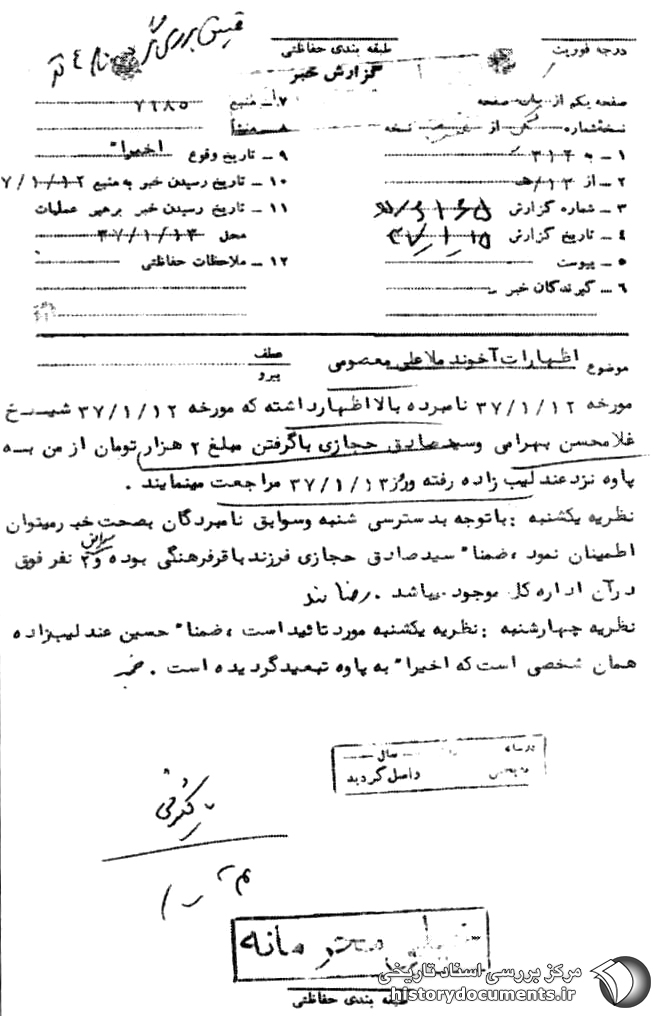 درجه فوریت
طبقه بندی حفاظتی
گزارش خبر
صفحه یکم از یک صفحه
نسخهٔ شماره از نسخه
۱ ـ به ۳۱۲
۲ ـ از ۱۳/هـ
۳ ـ شماره گزارش
۴ ـ تاریخ گزارش ۳۷/۱/۱۵
۵ ـ پیوست
۶ ـ گیرندگان خبر ـ
۷ ـ منبع ۷۱۸۵
۸ ـ منشأ
۹ ـ تاریخ وقوع اخیراً
۱۰ ـ تاریخ رسیدن خبر به منبع ۷/۱/۱۲
۱۱ ـ تاریخ رسیدن خبر برهبر عملیات
محل ۳۷/۱/۱۳
۱۲ ـ ملاحظات حفاظتی
موضوع اظهارات آخوند ملاعلی معصومی
عطف
پیرو
مورخه ۳۷/۱/۱۲ نامبرده بالا اظهار داشته که مورخه ۳۷/۱/۱۲ شیخ
غلامحسن بهرامی وسید صادق حجازی باگرفتن مبلغ ۲ هزار تومان از من به
پاوه نزد عندلیب زاده رفته وروز ۳۷/۱/۱۳ مراجعت مینمایند .
نظریه یکشنبه : باتوجه بدسترسی شنبه وسوابق نامبردگان بصحت خبر میتوان
اطمینان نمود ، ضمناً سید صادق حجازی فرزند باقر فرهنگی بوده و سوابق ۲ نفر فوق
در آن اداره کل موجود میباشد . رضا بند
نظریه چهارشنبه : نظریه یکشنبه مورد تائید است ، ضمناً حسین عندلیب زاده
همان شخصی است که اخیراً به پاوه تبعید گردیده است .
سال
واصل گردید
خیلی محرمانه
طبقه بندی حفاظتی
مرکز بررسی اسناد تاریخی
historydocuments.ir